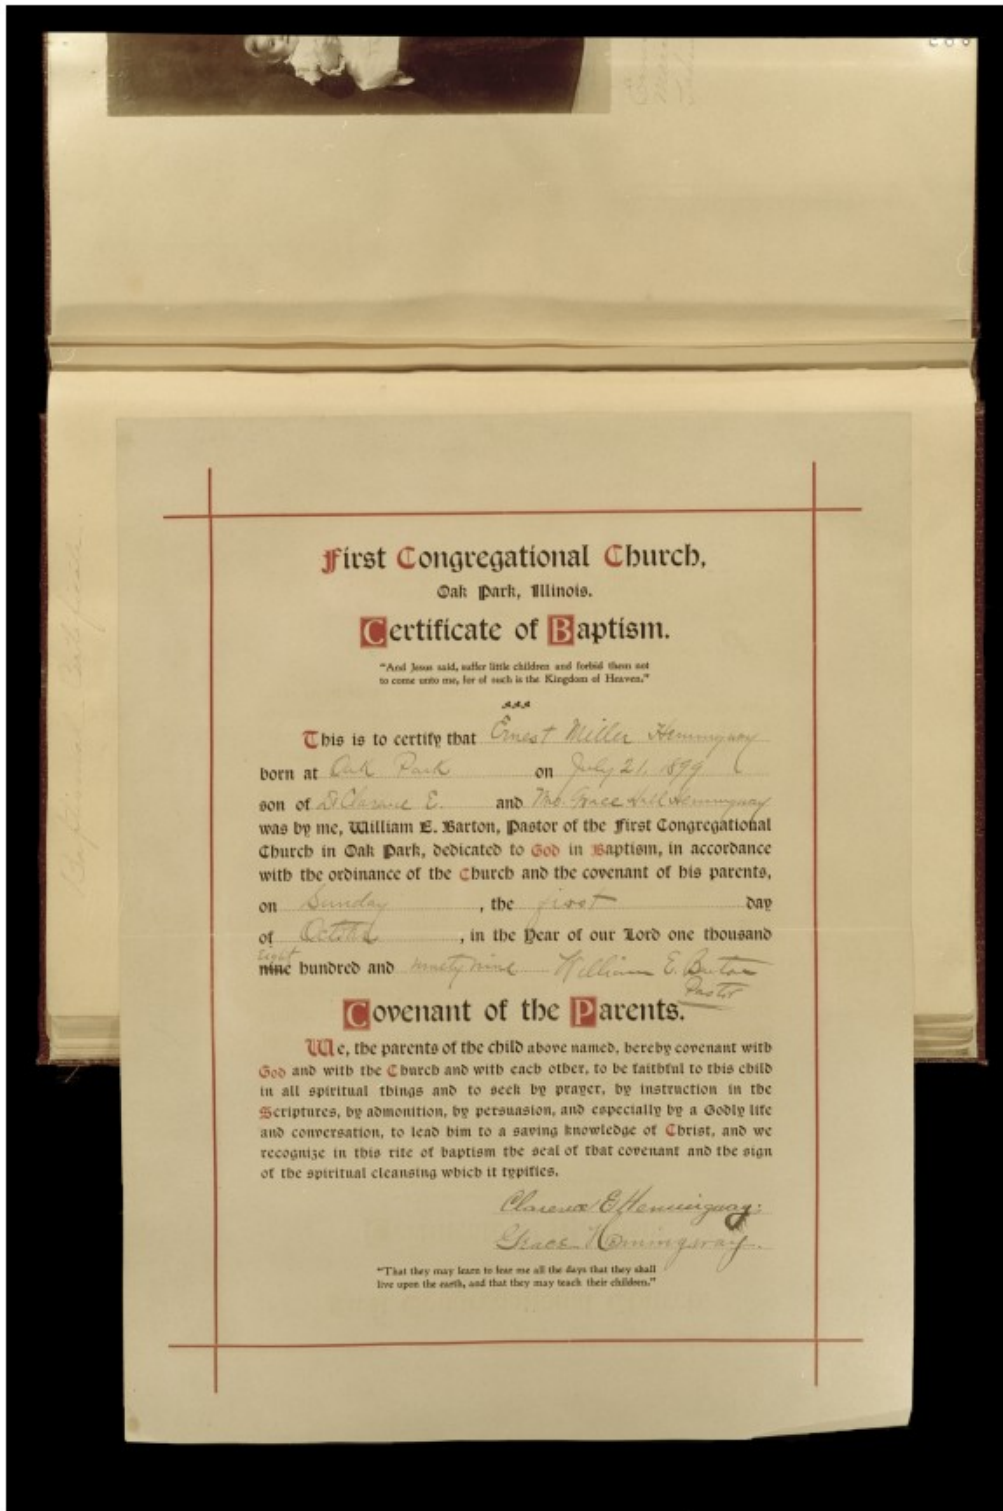 First Congregational Church,
Oak Park, Illinois.
Certificate of Baptism.
"And Jesus said, suffer little children and forbid them not
to come unto me, for of such is the Kingdom of Heaven."
This is to certify that Ernest Miller Hemingway
born at Oak Park on July 21, 1899
son of Dr Clarence E. and Mrs. Grace Hall Hemingway
was by me, William E. Barton, Pastor of the First Congregational
Church in Oak Park, dedicated to God in Baptism, in accordance
with the ordinance of the Church and the covenant of his parents,
on Sunday, the first day
of October, in the Year of our Lord one thousand
eight
nine hundred and ninety nine William E. Barton
Pastor
Covenant of the Parents.
We, the parents of the child above named, hereby covenant with
God and with the Church and with each other, to be faithful to this child
in all spiritual things and to seek by prayer, by instruction in the
Scriptures, by admonition, by persuasion, and especially by a Godly life
and conversation, to lead him to a saving knowledge of Christ, and we
recognize in this rite of baptism the seal of that covenant and the sign
of the spiritual cleansing which it typifies.
Clarence E Hemingway.
Grace Hemingway.
"That they may learn to fear me all the days that they shall
live upon the earth, and that they may teach their children."